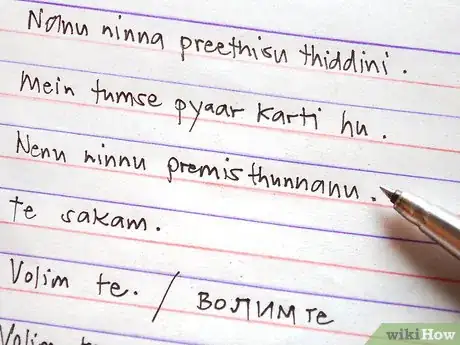 Nanu ninna preethisu thiddini.
Mein tumse pyaar karti hu.
Nenu ninnu premisthunnanu.
te sakam.
Volim te. / ВОЛИМ ТЕ
Volim
wikiHow